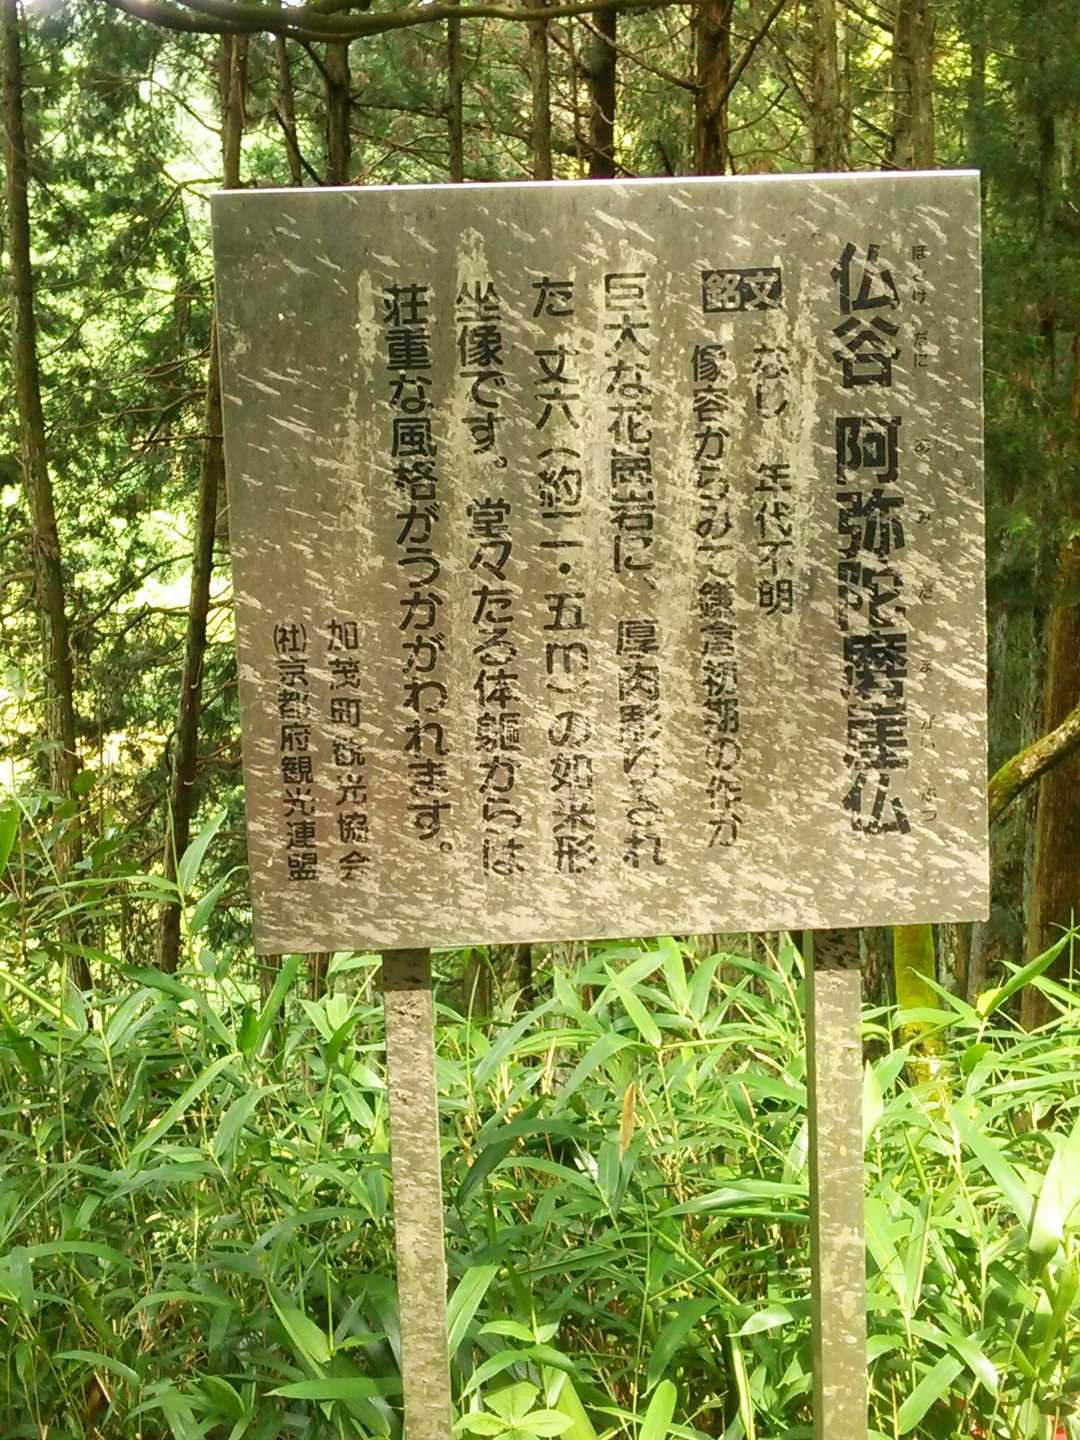 ほとけ だに あ み だ ま がい ぶつ
仏谷 阿弥陀磨崖仏
銘文 なし 年代不明
像容からみて鎌倉初期の作か
巨大な花崗岩に、厚肉彫りされ
た 丈六(約二・五m)の如来形
坐像です。堂々たる体軀からは
荘重な風格がうかがわれます。
加茂町観光協会
(社)京都府観光連盟